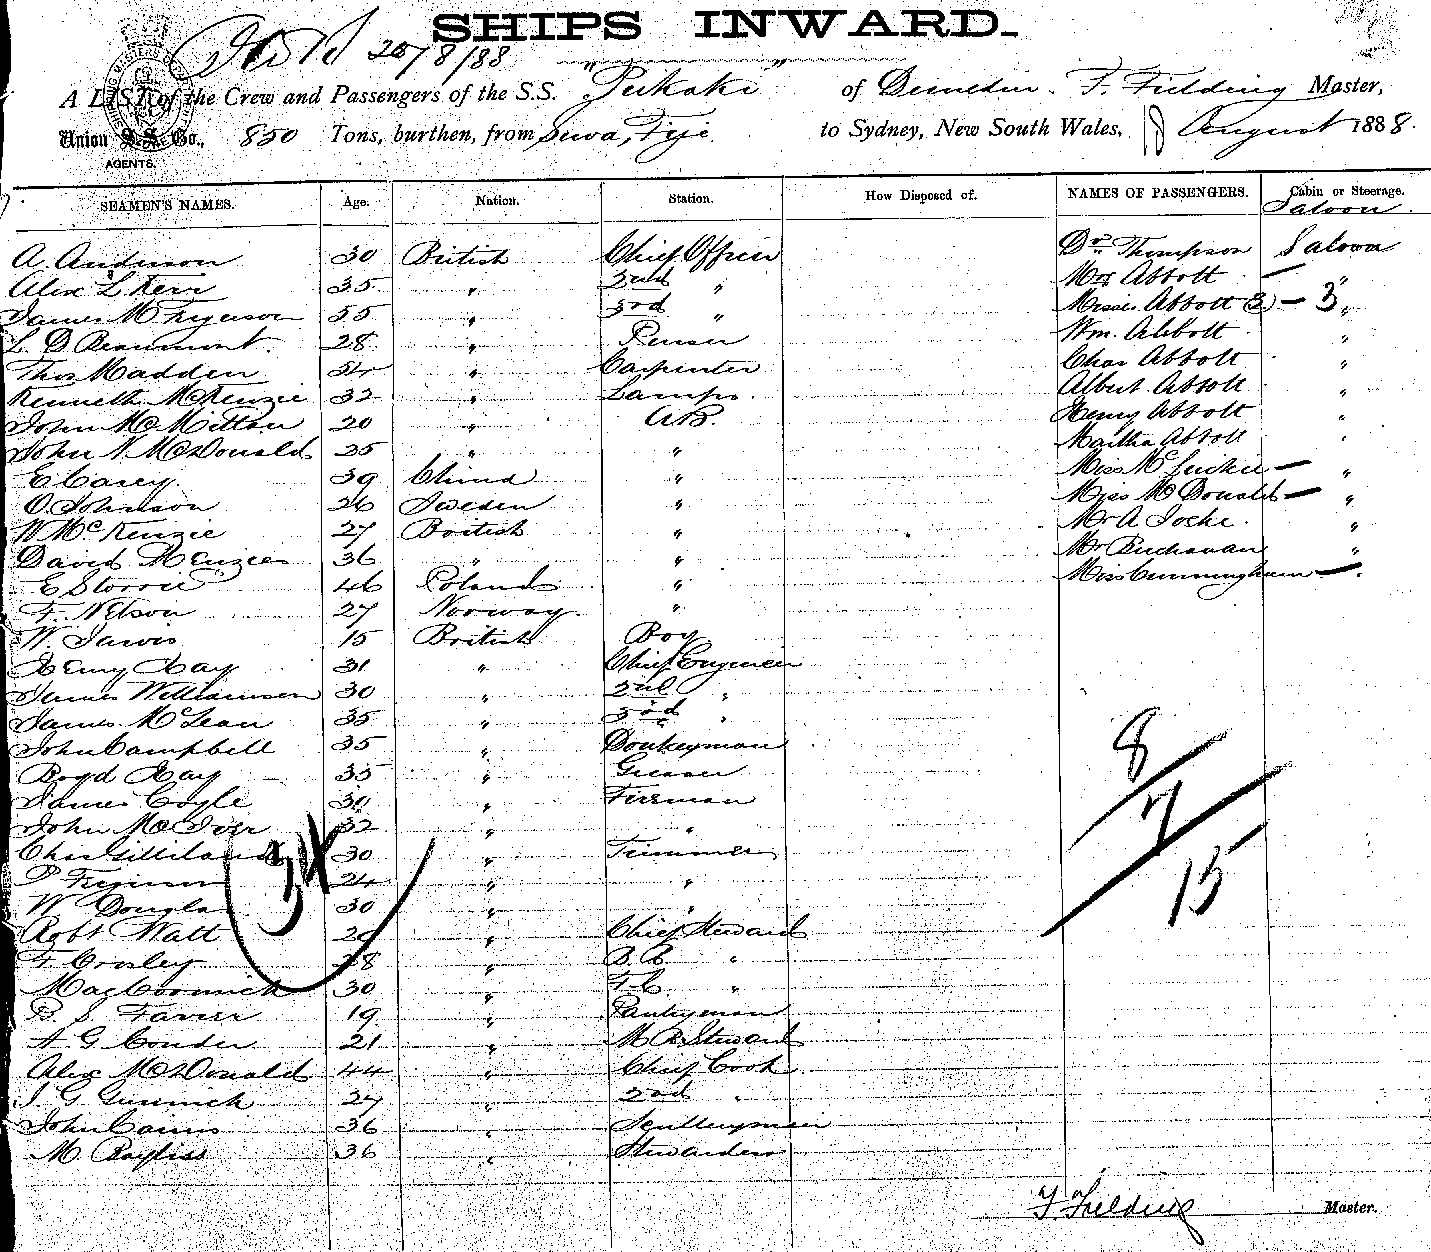 SHIPS INWARD.
25/8/88
A LIST of the Crew and Passengers of the S.S. "Pukaki" of Dunedin. F. Fielding Master,
Union S.S. Co., 850 Tons, burthen, from Suva, Fiji to Sydney, New South Wales, 18 August 1888.
AGENTS.
SEAMEN'S NAMES. Age. Nation. Station. How Disposed of. NAMES OF PASSENGERS. Cabin or Steerage.
Saloon
A. Anderson 30 British Chief Officer Dr Thompson Saloon
Alex L Kerr 35 " 2nd " Mrs Abbott — "
James M Ferguson 55 " 3rd " Misses Abbott (3) — 3 "
L. D Beaumont. 28 " Purser Wm. Abbott "
Thos Madden 54 " Carpenter Chas Abbott "
Kenneth McKenzie 32 " Lamps. Albert Abbott "
John McMittan 20 " AB. Henry Abbott "
John N. McDonald 25 " " Martha Abbott "
E Casey. 39 China " Miss Mc — "
O. Johnson 26 Sweden " Miss McDonald — "
W McKenzie 27 British " Mr A Locke. "
David Menzies 36 " " Mr Buchanan "
E Storrie 46 Poland " Miss Cunningham —
F. Nelson 27 Norway "
W. Jarvis 15 British Boy
Henry Hay 31 " Chief Engineer
James Williamson 30 " 2nd "
James McLean 35 " 3rd "
John Campbell 35 " Donkeyman
Boyd Hay 35 " Greaser
James Coyle 30 " Fireman
John McIver 32 " "
Chas Gilliland 30 " Trimmer
P Ferguson 24 " "
W Douglas 30 " "
Robt Watt 26 " Chief Steward
F. Crosley 28 " B. C. "
MacCormick 30 " F. C. "
B. S. Favier 19 " Pantryman
A G Conder 21 " M R Steward
Alex McDonald 44 " Chief Cook
J. G. 27 " 2nd "
John Cairns 36 " Sculleryman
M. Bayliss 36 " Stewardess
34
8
7
15
F. Fielding Master.